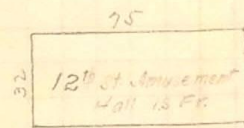 75
32
12th St. Amusement
Hall 1 S Fr.